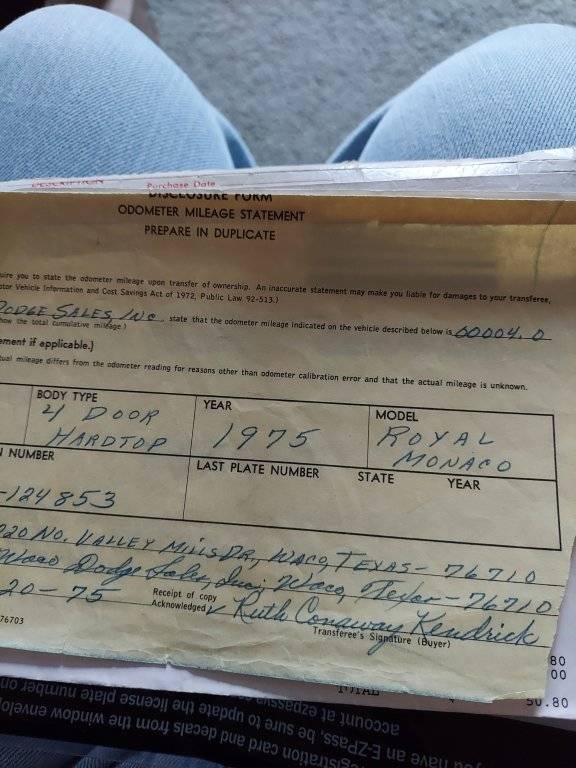 DESCRIPTION Purchase Date
DISCLOSURE FORM
ODOMETER MILEAGE STATEMENT
PREPARE IN DUPLICATE
uire you to state the odometer mileage upon transfer of ownership. An inaccurate statement may make you liable for damages to your transferee,
otor Vehicle Information and Cost Savings Act of 1972, Public Law 92-513.)
DODGE SALES, INC. state that the odometer mileage indicated on the vehicle described below is 00004.0
how the total cumulative mileage)
ement if applicable.)
tual mileage differs from the odometer reading for reasons other than odometer calibration error and that the actual mileage is unknown.
BODY TYPE YEAR MODEL
4 DOOR HARDTOP 1975 ROYAL MONACO
N NUMBER LAST PLATE NUMBER STATE YEAR
-124853
220 NO. VALLEY MILLS DR., WACO, TEXAS - 76710
Waco Dodge Sales, Inc; Waco, Texas - 76710
20-75 Receipt of copy Acknowledged Ruth Conaway Kendrick
76703 Transferee's Signature (Buyer)
80
00
TOTAL 50.80
account at ezpass
you have an E-ZPass, be sure to update the license plate number on
gistration card and decals from the window envelo